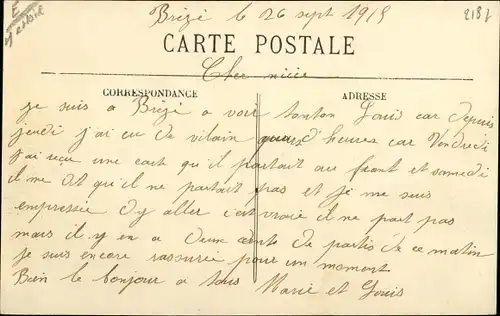 Brézé le 26 sept 1915
2187
CARTE POSTALE
Cher nièce
CORRESPONDANCE
ADRESSE
je suis a Brézé a voir tonton Louis car depuis
jeudi j'ai eu de vilain quart d'heures car Vendredi
j'ai reçu une cart qu'il partait au front et samedi
il me dit qu'il ne partait pas et je me suis
empressée d'y aller c'est vraie il ne part pas
mais il y en a deux cents de partis de ce matin
je suis encore rassurée pour un moment
Bien le bonjour a tous Marie et Louis